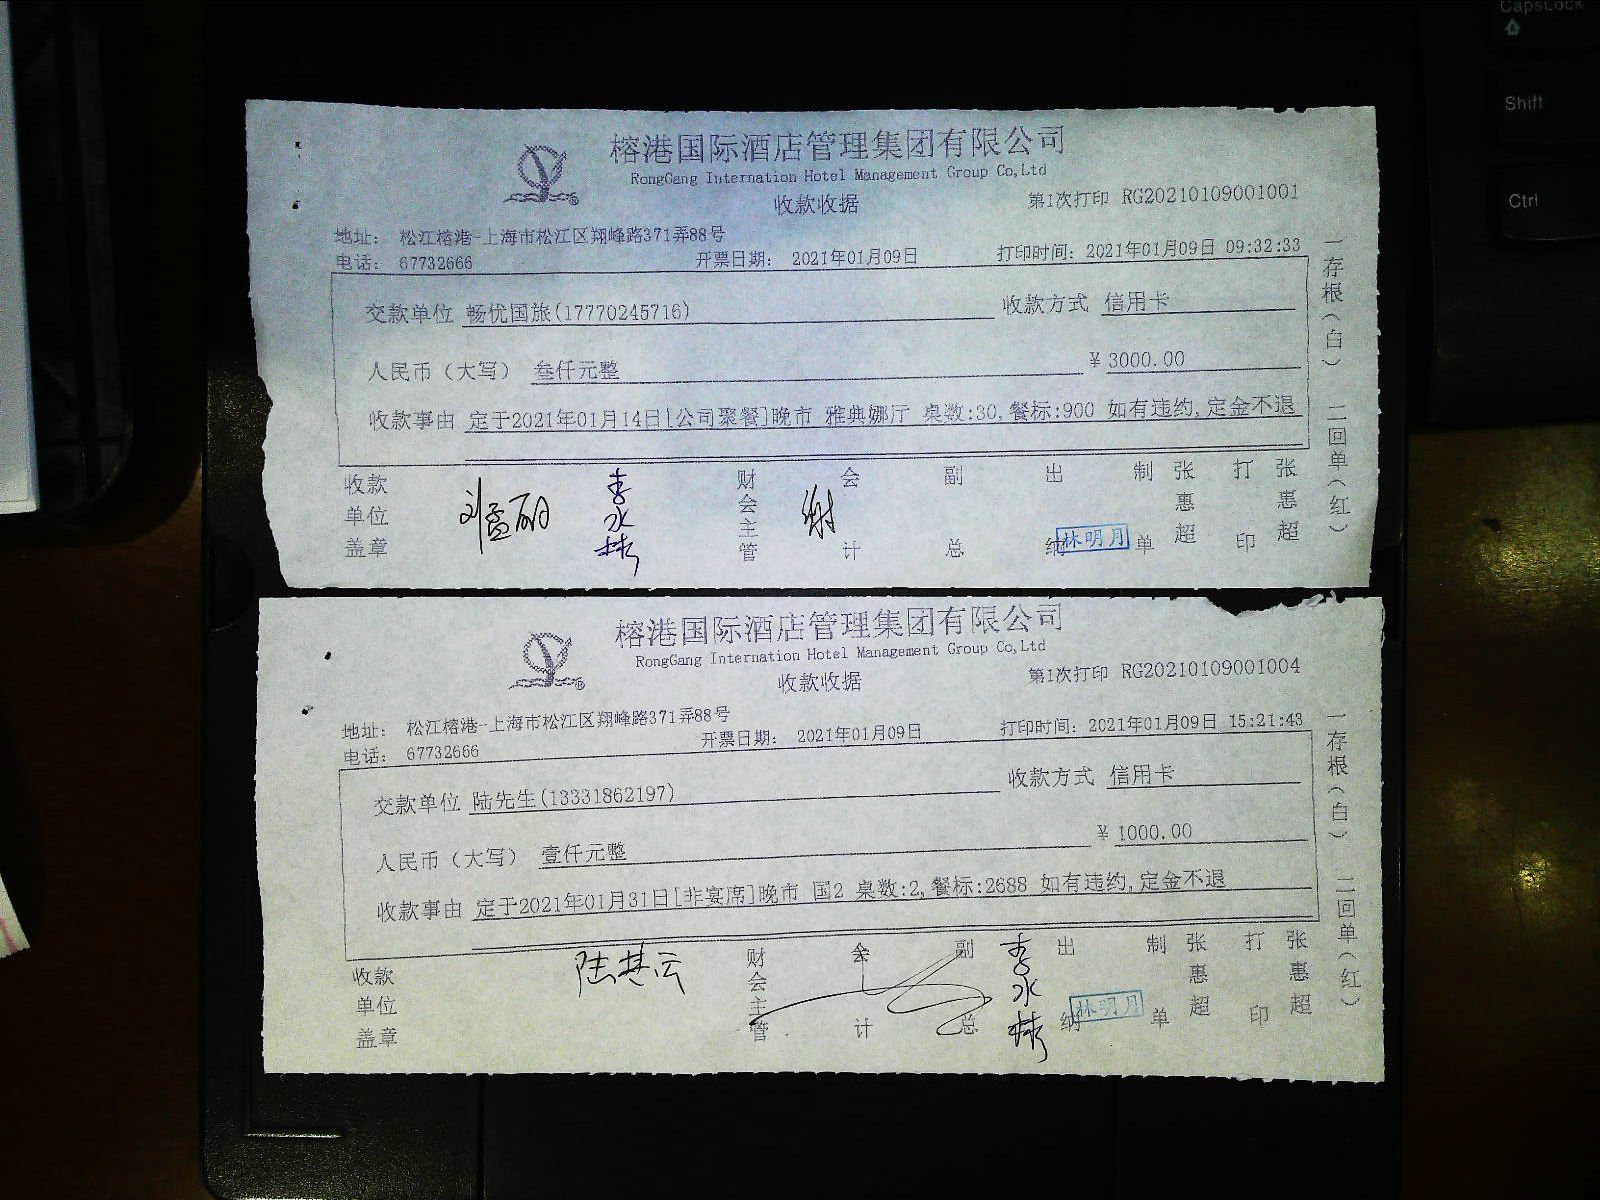 CapsLock
Shift
Ctrl
榕港国际酒店管理集团有限公司
RongGang Internation Hotel Management Group Co,Ltd
收款收据
第1次打印 RG20210109001001
地址： 松江榕港-上海市松江区翔峰路371弄88号
电话： 67732666
开票日期： 2021年01月09日
打印时间：2021年01月09日 09:32:33
交款单位 畅优国旅(17770245716)
收款方式 信用卡
人民币（大写） 叁仟元整
¥ 3000.00
收款事由 定于2021年01月14日[公司聚餐]晚市 雅典娜厅 桌数:30,餐标:900 如有违约,定金不退
收款单位盖章
李水林
财会主管
谢
会计
副总
出纳
林明月
制单 张惠超
打印 张惠超
一存根（白） 二回单（红）
榕港国际酒店管理集团有限公司
RongGang Internation Hotel Management Group Co,Ltd
收款收据
第1次打印 RG20210109001004
地址： 松江榕港-上海市松江区翔峰路371弄88号
电话： 67732666
开票日期： 2021年01月09日
打印时间：2021年01月09日 15:21:43
交款单位 陆先生(13331862197)
收款方式 信用卡
人民币（大写） 壹仟元整
¥ 1000.00
收款事由 定于2021年01月31日[非宴席]晚市 国2 桌数:2,餐标:2688 如有违约,定金不退
收款单位盖章
财会主管
会计
副总
李水林
出纳
林明月
制单 张惠超
打印 张惠超
一存根（白） 二回单（红）